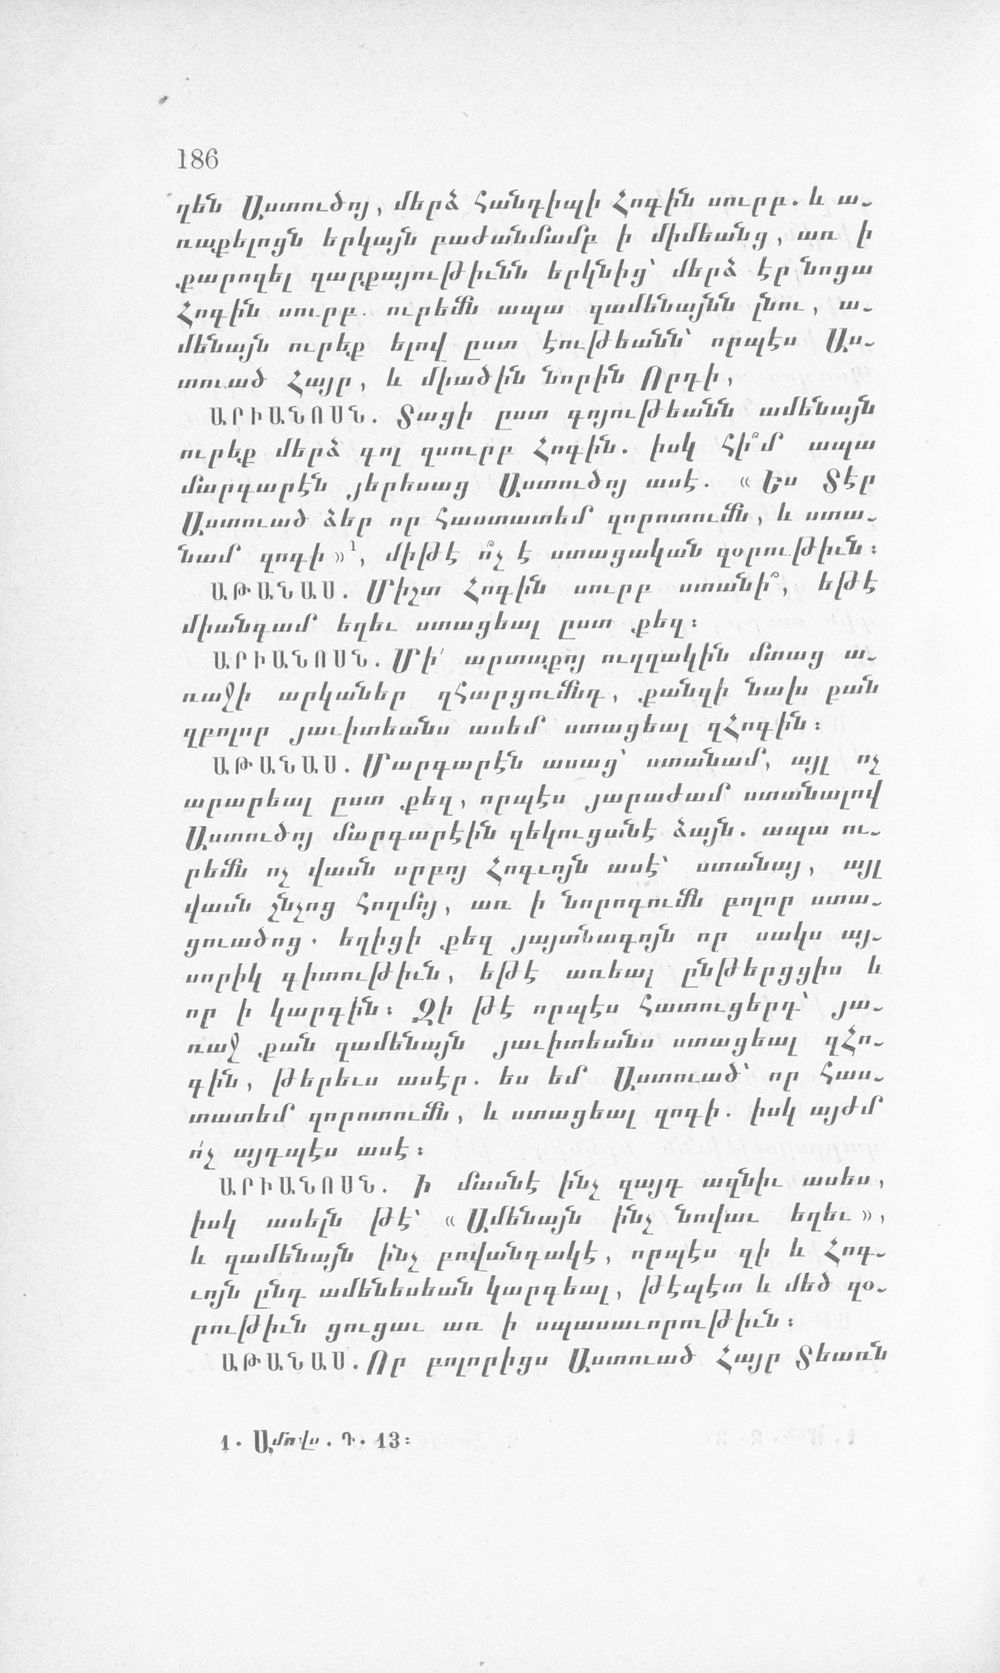 186
ղեն Աստուծոյ, մերձ հանդիպի Հոգին սուրբ. և ա֊
ռաքելոցն երկայն բաժանմամբ ի միմեանց, առ ի
քարոզել զարքայութիւնն երկնից՝ մերձ էր նոցա
Հոգին սուրբ. ուրեմն ապա զամենայնն լնու, ա֊
մենայն ուրեք ելով ըստ էութեանն՝ որպէս Աս֊
տուած Հայր, և միածին նորին Որդի,
ԱՐԻԱՆՈՍՆ. Տացի ըստ գոյութեանն ամենայն
ուրեք մերձ գոլ զսուրբ Հոգին. իսկ հի՞մ ապա
մարգարէն յերեսաց Աստուծոյ ասէ. « Ես Տէր
Աստուած ձեր որ հաստատեմ զորոտումն, և ստա֊
նամ զոգի »¹, միթէ ո՞չ է ստացական զօրութիւն:
ԱԹԱՆԱՍ. Միշտ Հոգին սուրբ ստանի՞, եթէ
միանգամ եղեւ ստացեալ ըստ քեզ:
ԱՐԻԱՆՈՍՆ. Մի՛ արտաքոյ ուղղակին մտաց ա֊
ռաջի արկաներ զհարցումնդ, քանզի նախ քան
զբոլոր յաւիտեանս ասեմ ստացեալ զՀոգին:
ԱԹԱՆԱՍ. Մարգարէն ասաց՝ ստանամ, այլ ոչ
արարեալ ըստ քեզ, որպէս յարաժամ ստանալով
Աստուծոյ մարգարէին զեկուցանէ ձայն. ապա ու֊
րեմն ոչ վասն սրբոյ Հոգւոյն ասէ՝ ստանայ, այլ
վասն շնչոց հողմոյ, առ ի նորոգումն բոլոր ստա֊
ցուածոց. եղիցի քեզ յայտնագոյն որ սակս այ֊
սորիկ գիտութիւն, եթէ առեալ ընթերցցիս և
որ ի կարգին: Զի թէ որպէս հատուցերդ՝ յա֊
ռաջ քան զամենայն յաւիտեանս ստացեալ զՀո֊
գին, թերեւս ասէր. ես եմ Աստուած՝ որ հաս֊
տատեմ զորոտումն, և ստացեալ զոգի. իսկ այժմ
ո՛չ այդպէս ասէ:
ԱՐԻԱՆՈՍՆ. Ի մասնէ ինչ զայդ ազնիւ ասես,
իսկ ասելն թէ՝ « Ամենայն ինչ նովաւ եղեւ »,
և զամենայն ինչ բովանդակէ, որպէս զի և Հոգ֊
ւոյն ընդ ամենեսեան կարգեալ, թէպէտ և մեծ զօ֊
րութիւն ցուցաւ առ ի սպասաւորութիւն:
ԱԹԱՆԱՍ. Որ բոլորիցս Աստուած Հայր Տեառն
1. Ամովս. Դ. 13: